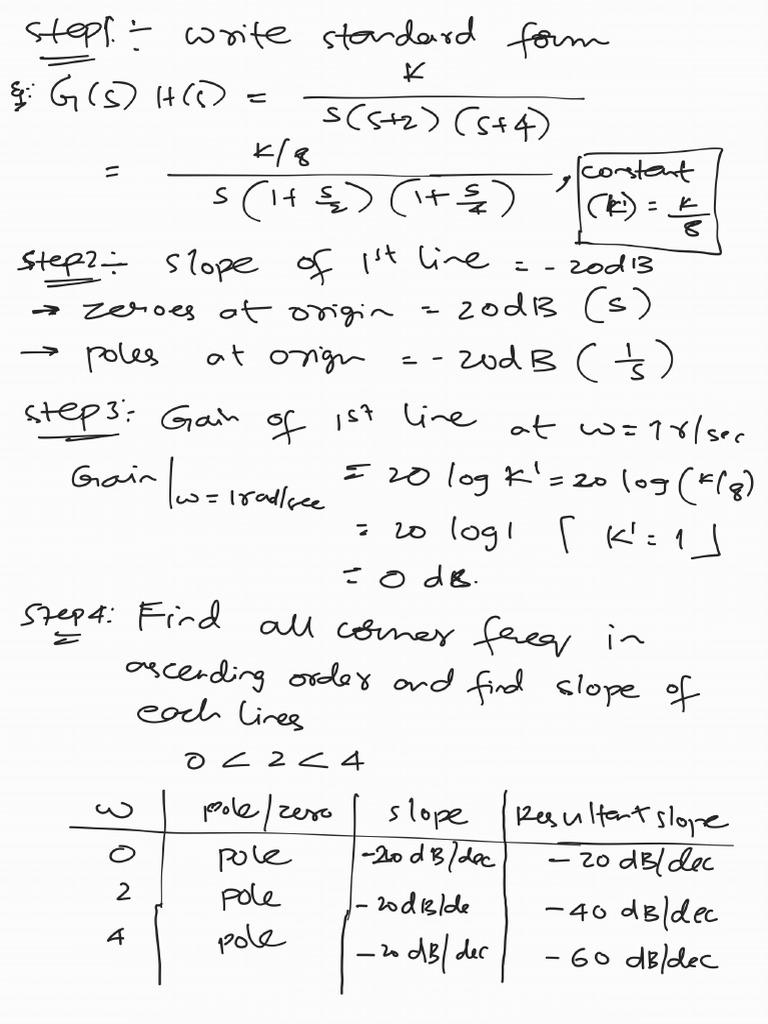 Step1:- write standard form
Eg: G(s) H(s) = K / s(s+2) (s+4)
= K/8 / s (1+ s/2) (1+ s/4) , constant (k') = K/8
Step2:- slope of 1st line = - 20dB
→ zeroes at origin = 20dB (s)
→ poles at origin = - 20dB (1/s)
step3:- Gain of 1st line at ω=1r/sec
Gain|ω=1rad/sec = 20 log K' = 20 log(K/8)
= 20 log1 [ K' = 1 ]
= 0 dB.
Step4: Find all corner freq in
ascending order and find slope of
each lines
0 < 2 < 4
ω pole/zero slope Resultant slope
0 pole -20 dB/dec - 20 dB/dec
2 pole - 20dB/de - 40 dB/dec
4 pole - 20 dB/dec - 60 dB/dec